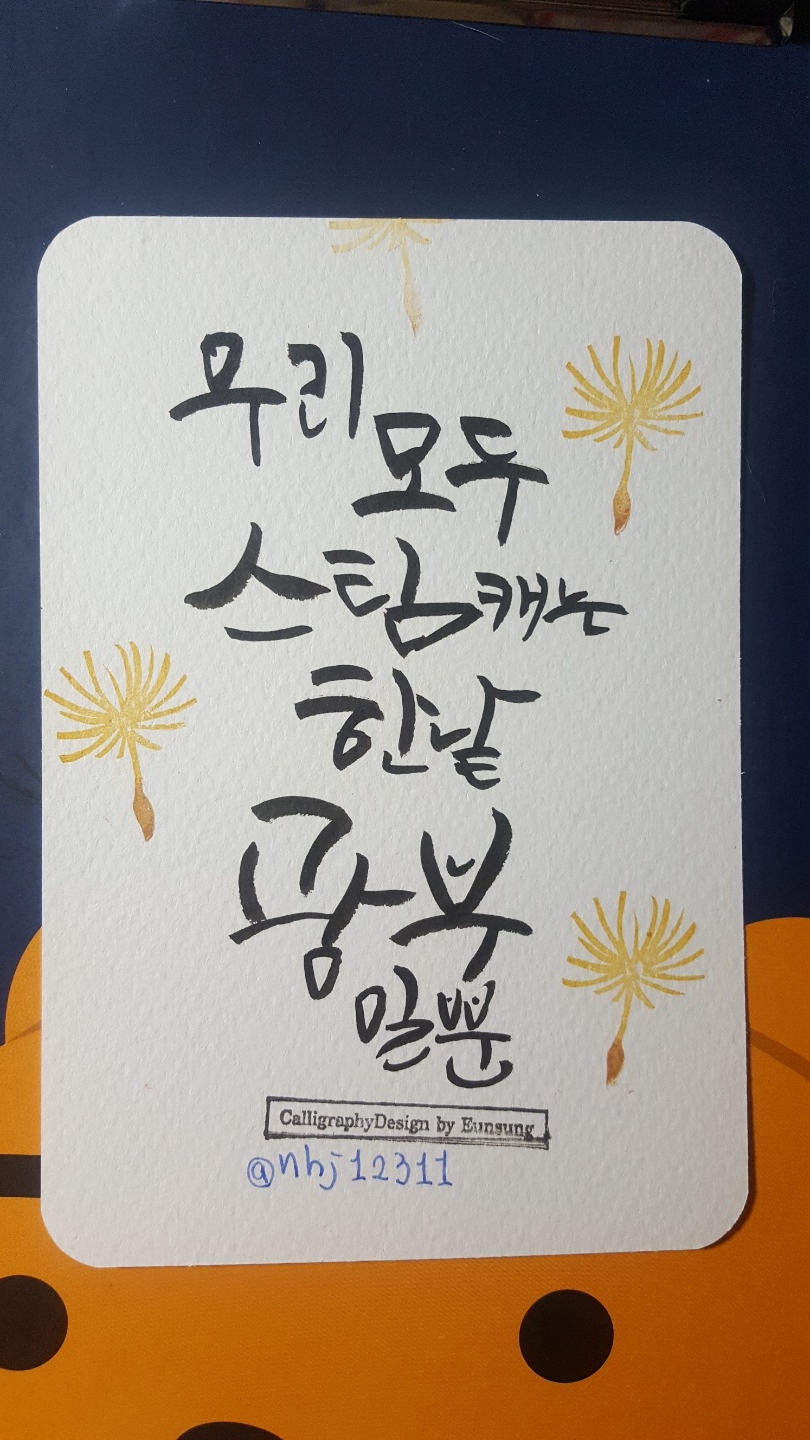 우리
모두
스팀 캐는
한낱
광부
일뿐
CalligraphyDesign by Eunsung
@nhj12311